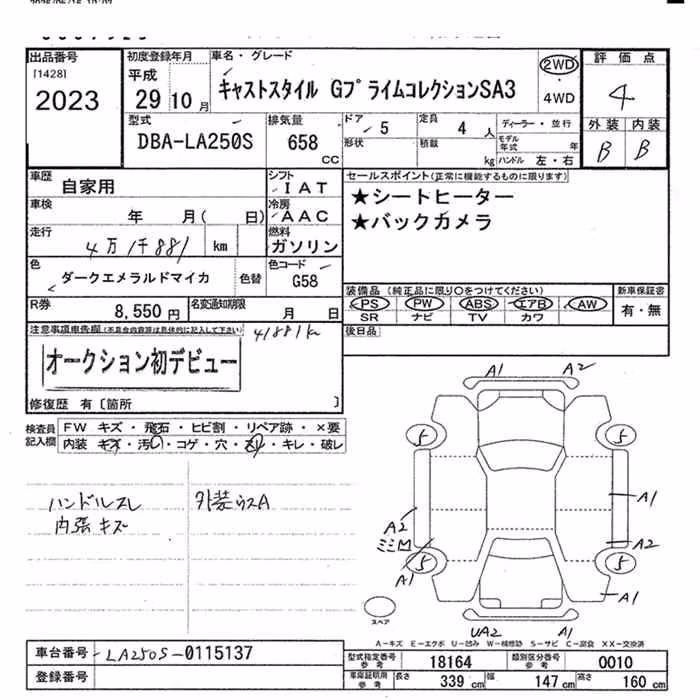 出品番号
[1428]
2023
初度登録年月
平成
29 10 月
車名・グレード
キャストスタイル GプライムコレクションSA3
2WD
4WD
評価点
4
外装 内装
B B
型式
DBA-LA250S
排気量
658
CC
ドア
5
定員
4 人
ディーラー・並行
形状
積載
kg
モデル年式
年
ハンドル 左・右
車歴
自家用
シフト
IAT
車検
年 月( 日)
冷房
AAC
走行
4万1千881 km
燃料
ガソリン
色
ダークエメラルドマイカ
色替
色コード
G58
R券
8,550 円
名変通知期限
月 日
セールスポイント(正常に機能するものに限ります)
★シートヒーター
★バックカメラ
装備品 (純正品に限り○をつけてください)
PS PW ABS エアB AW
SR ナビ TV カワ
新車保証書
有・無
後日品
注意事項車告欄(不具合内容等は具体的に記入して下さい)
41881k
オークション初デビュー
修復歴 有〔箇所 〕
検査員記入欄
FW キズ・飛石・ヒビ割・リペア跡・×要
内装 キズ・汚い・コゲ・穴・スレ・キレ・破レ
ハンドルスレ
内張キズ
外装ウスA
A1
A2
5
5
A1
A2
A2
ミミM
A1
5
5
A1
スペア
UA2
A1
A-キズ E-エクボ U-凹み W-補修跡 S-サビ C-腐食 XX-交換済
車台番号
LA250S-0115137
登録番号
型式指定番号
参考
18164
類別区分番号
参考
0010
車庫証明用
参考
長さ
339 cm
幅
147 cm
高さ
160 cm